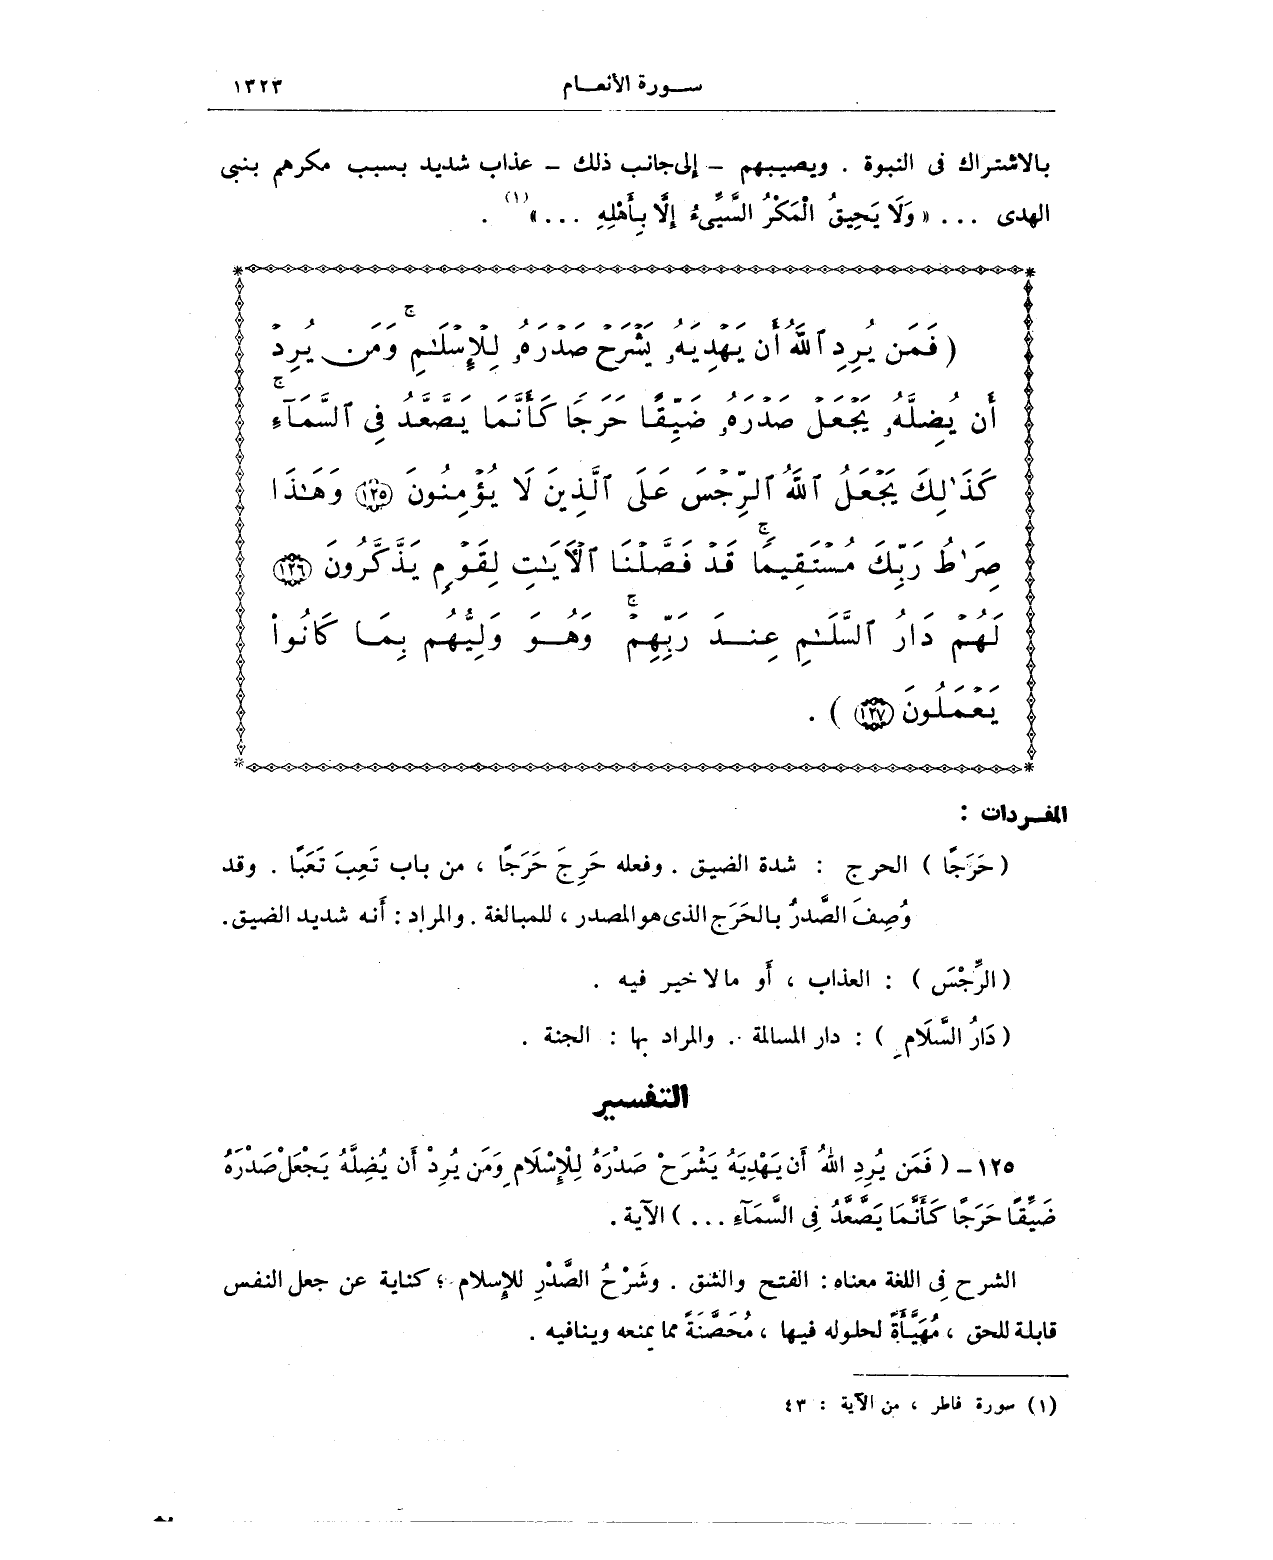 سورة الأنعام ١٣٢٣
بالاشتراك فى النبوة . ويصيبهم – إلى جانب ذلك – عذاب شديد بسبب مكرهم بنبى
الهدى ... « وَلَا يَحِيقُ الْمَكْرُ السَّيِّىءُ إِلَّا بِأَهْلِهِ ... »(١) .
( فَمَن يُرِدِ ٱللَّهُ أَن يَهْدِيَهُۥ يَشْرَحْ صَدْرَهُۥ لِلْإِسْلَـٰمِ ۖ وَمَن يُرِدْ
أَن يُضِلَّهُۥ يَجْعَلْ صَدْرَهُۥ ضَيِّقًا حَرَجًا كَأَنَّمَا يَصَّعَّدُ فِى ٱلسَّمَآءِ ۚ
كَذَٰلِكَ يَجْعَلُ ٱللَّهُ ٱلرِّجْسَ عَلَى ٱلَّذِينَ لَا يُؤْمِنُونَ ١٢٥ وَهَـٰذَا
صِرَٰطُ رَبِّكَ مُسْتَقِيمًا ۗ قَدْ فَصَّلْنَا ٱلْـَٔايَـٰتِ لِقَوْمٍ يَذَّكَّرُونَ ١٢٦
لَهُمْ دَارُ ٱلسَّلَـٰمِ عِندَ رَبِّهِمْ ۖ وَهُوَ وَلِيُّهُم بِمَا كَانُوا۟
يَعْمَلُونَ ١٢٧ ) .
المفردات :
( حَرَجًا ) الحرج : شدة الضيق . وفعله حَرِجَ حَرَجًا ، من باب تَعِبَ تَعَبًا . وقد
وُصِفَ الصَّدرُ بالحَرَج الذى هو المصدر ، للمبالغة . والمراد : أنه شديد الضيق .
( الرِّجْسَ ) : العذاب ، أو ما لا خير فيه .
( دَارُ السَّلَامِ ) : دار المسالمة . والمراد بها : الجنة .
التفسير
١٢٥ – ( فَمَن يُرِدِ اللهُ أَن يَهْدِيَهُ يَشْرَحْ صَدْرَهُ لِلْإِسْلَامِ وَمَن يُرِدْ أَن يُضِلَّهُ يَجْعَلْ صَدْرَهُ
ضَيِّقًا حَرَجًا كَأَنَّمَا يَصَّعَّدُ فِى السَّمَآءِ ... ) الآية .
الشرح فِى اللغة معناه : الفتح والشق . وشَرْحُ الصَّدْرِ للإسلام ؛ كناية عن جعل النفس
قابلة للحق ، مُهَيَّأَةً لحلوله فيها ، مُحَصَّنَةً مما يمنعه وينافيه .
(١) سورة فاطر ، من الآية : ٤٣